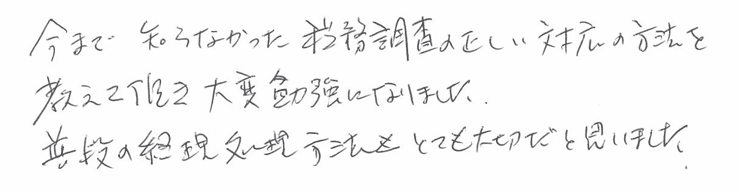 今まで知らなかった税務調査の正しい対応の方法を
教えて頂き大変勉強になりました。
普段の経理処理方法もとても大切だと思いました。